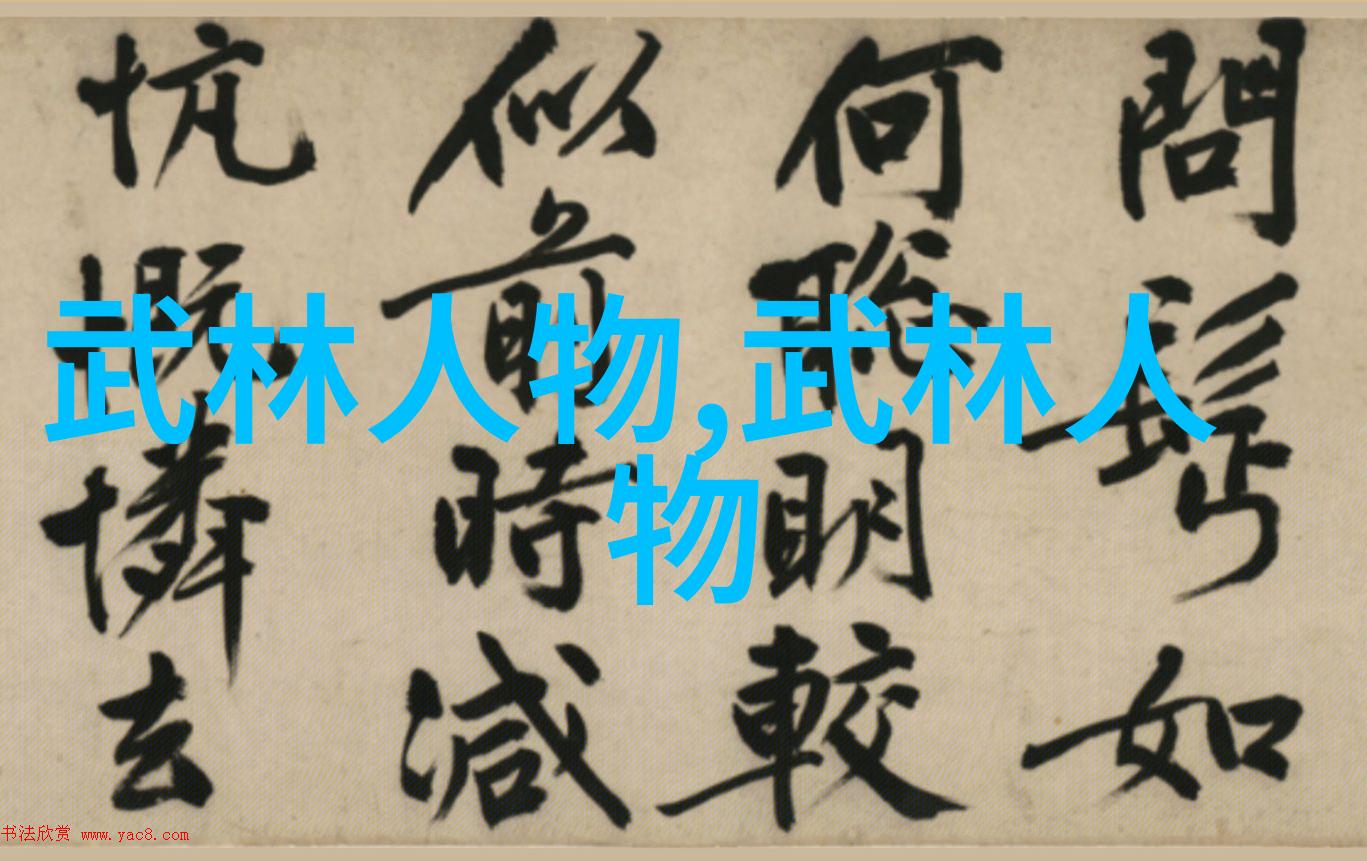 問如
何聰明較
似前時減
忼慨憐去
武林人物,武林人
物
书法欣赏 www.yac8.com